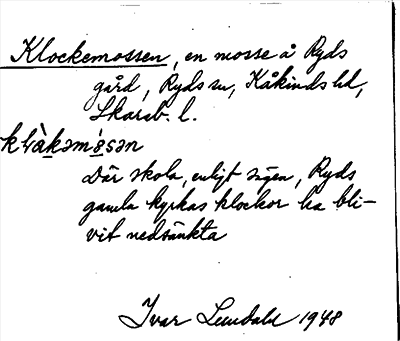 Klockemossen, en mosse å Ryds
gård, Ryds sn, Kåkinds hd,
Skarab. l.
klåkəmòsən
Där skola, enligt sägen, Ryds
gamla kyrkas klockor ha bli-
vit nedsänkta
Ivar Lundahl 1948